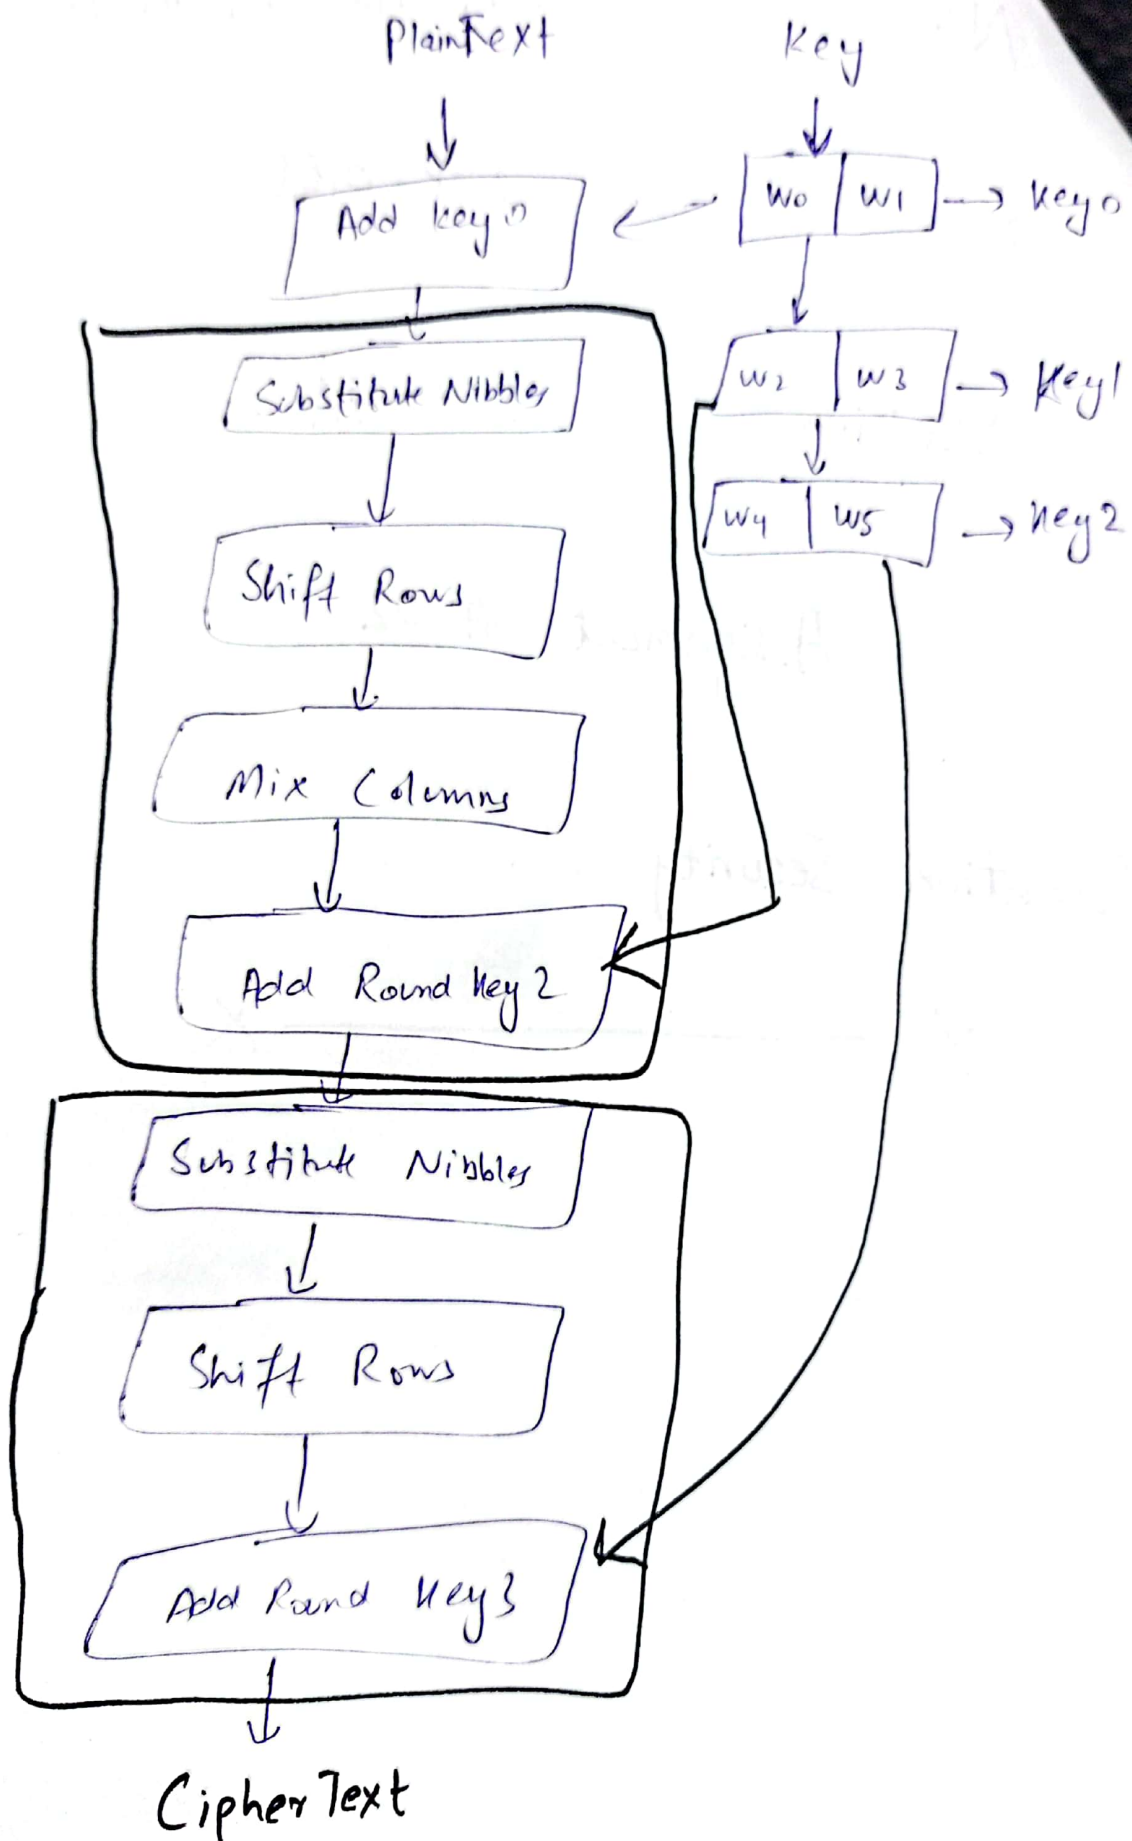 PlainText
Key
Add key0
W0 W1 → Key0
W2 W3 → Key1
Substitute Nibbles
W4 W5 → Key2
Shift Rows
Mix Columns
Add Round Key2
Substitute Nibbles
Shift Rows
Add Round Key3
CipherText